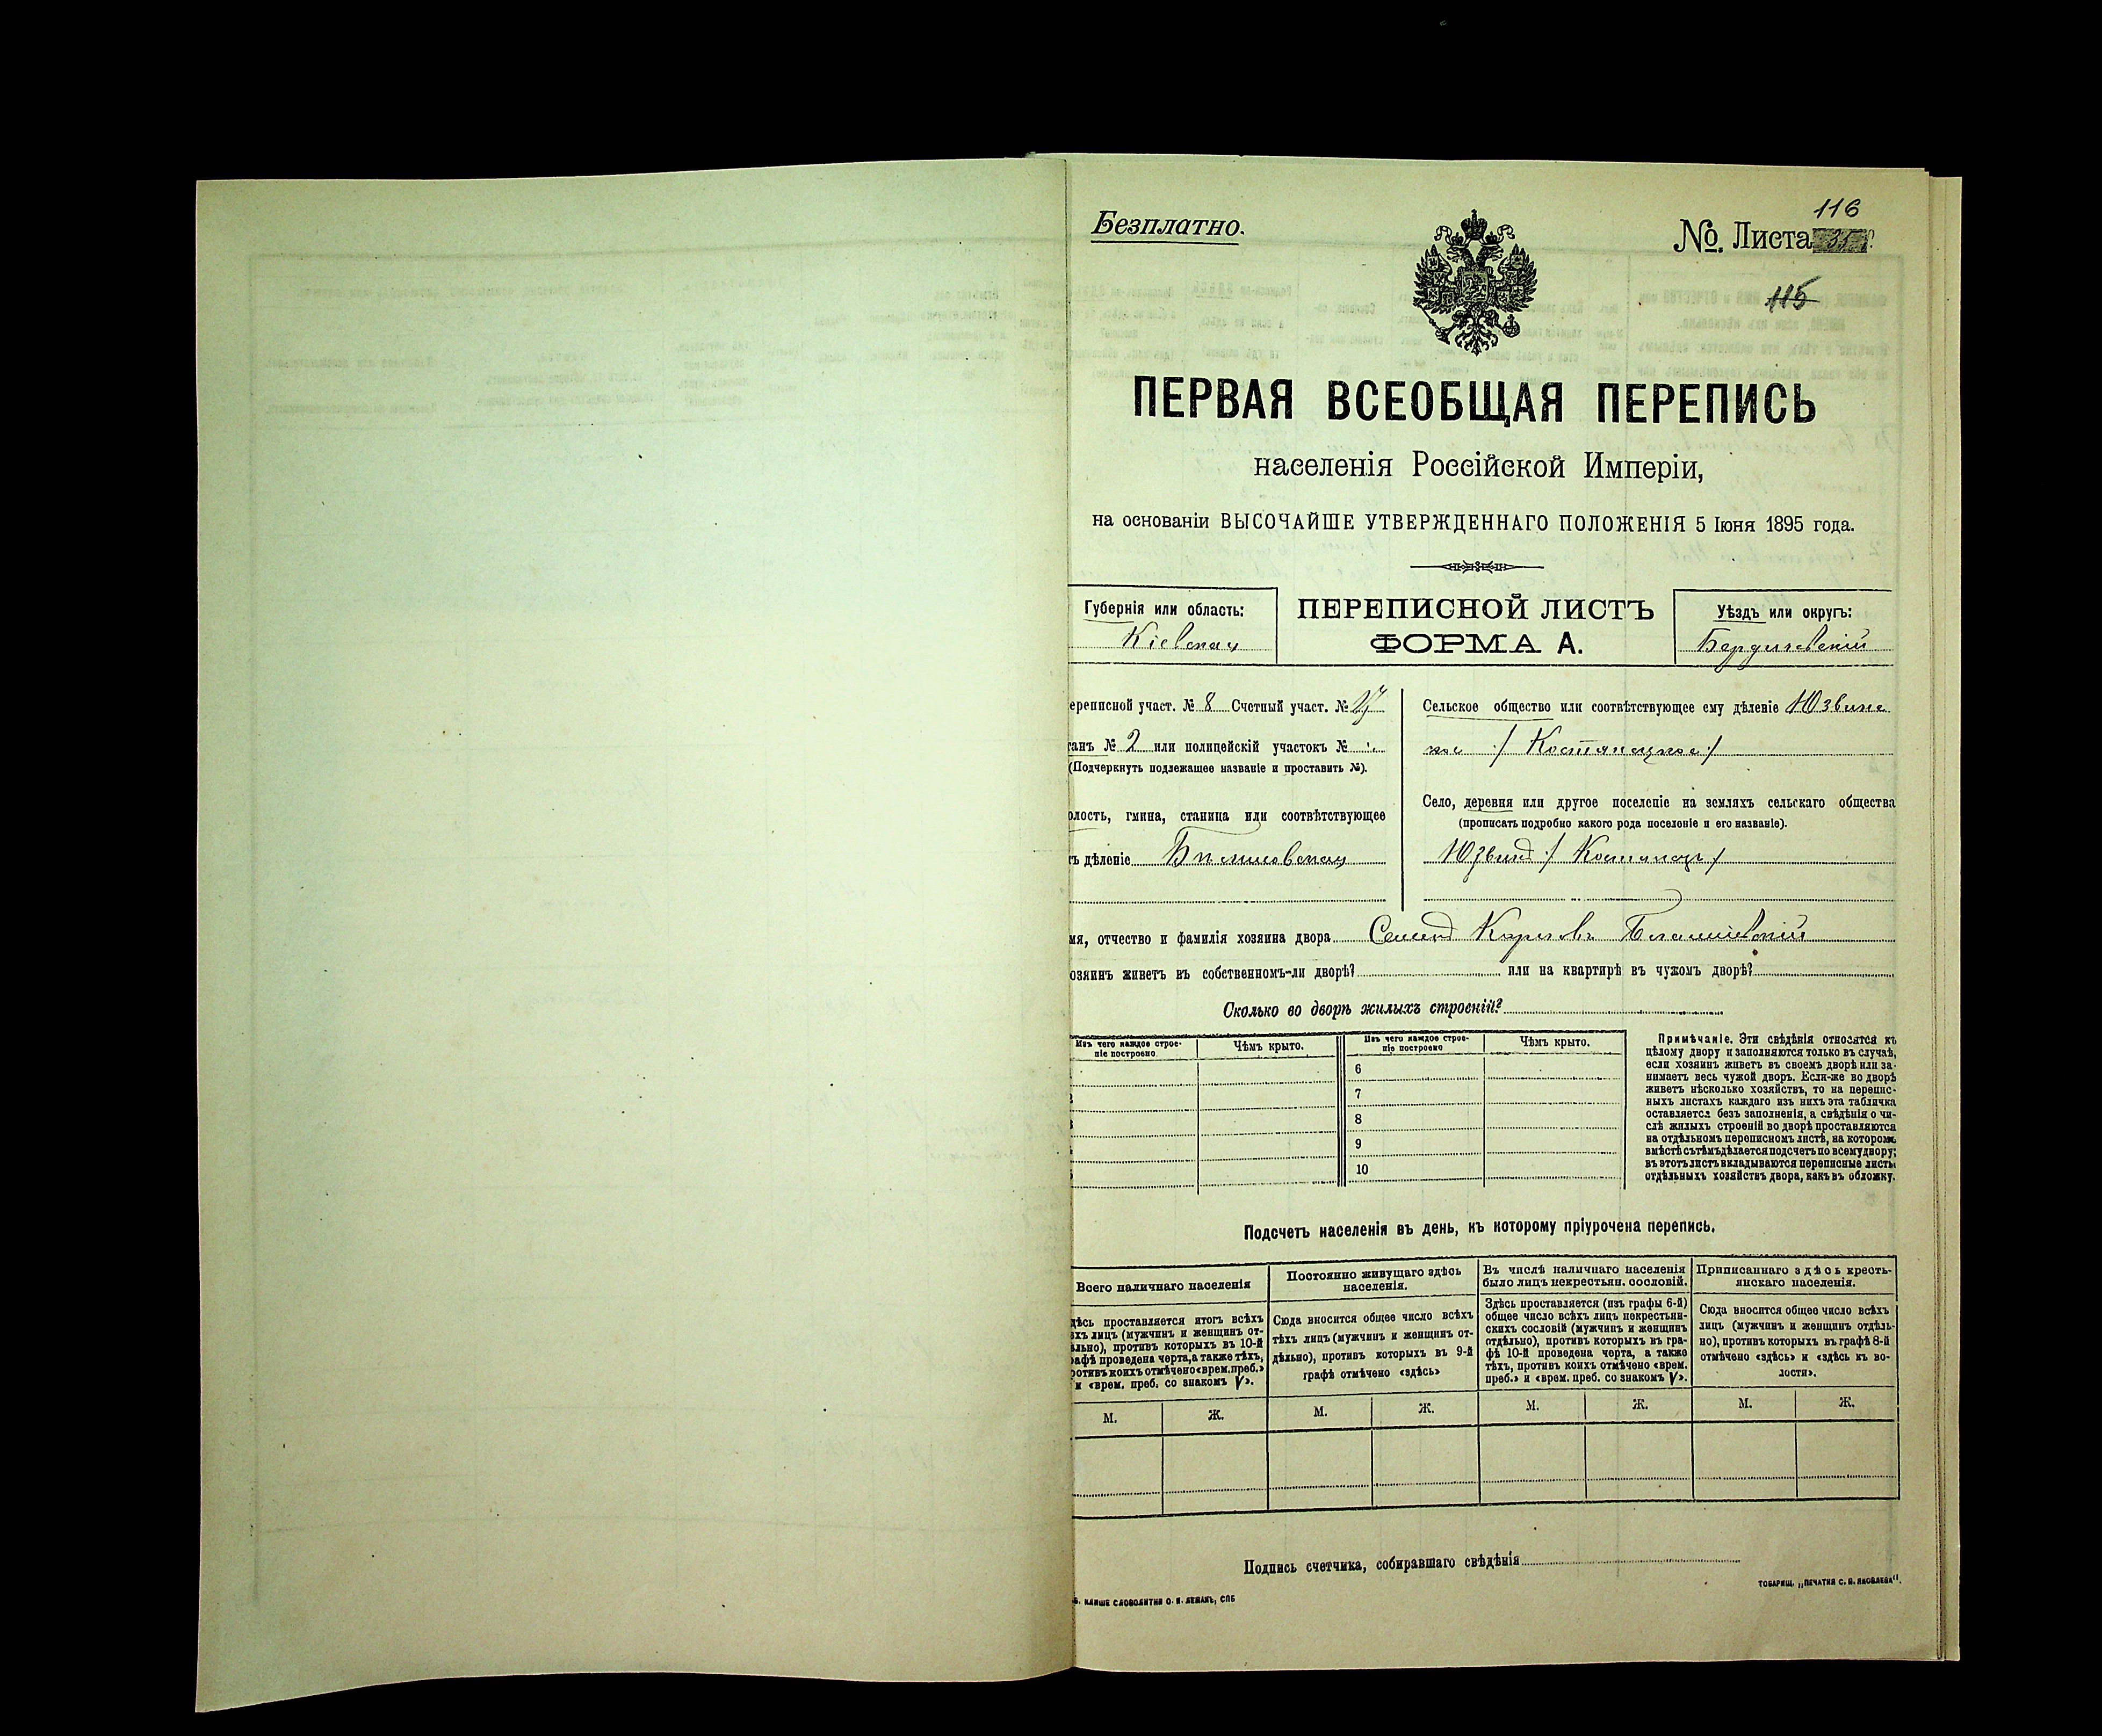 116
Безплатно.
№. Листа
115
ПЕРВАЯ ВСЕОБЩАЯ ПЕРЕПИСЬ
населенія Россійской Имперіи,
на основаніи ВЫСОЧАЙШЕ УТВЕРЖДЕННАГО ПОЛОЖЕНІЯ 5 Іюня 1895 года.
Губернія или область:
Кіевская
ПЕРЕПИСНОЙ ЛИСТЪ
ФОРМА А.
Уѣздъ или округъ:
Бердичевскій
ереписной участ. № 8 Счетный участ. №
танъ № 2 или полицейскій участокъ №
(Подчеркнуть подлежащее названіе и проставить №).
олость, гмина, станица или соотвѣтствующее
ъ дѣленіе
Сельское общество или соотвѣтствующее ему дѣленіе Юзвинс
кое /
Село, деревня или другое поселеніе на земляхъ сельскаго общества
(прописать подробно какого рода поселеніе и его названіе).
Юзвинъ /
мя, отчество и фамилія хозяина двора Семенъ Карповъ
озяинъ живетъ въ собственномъ-ли дворѣ? или на квартирѣ въ чужомъ дворѣ?
Сколько во дворѣ жилыхъ строеній?
Изъ чего каждое строе-
ніе построено
Чѣмъ крыто.
Изъ чего каждое строе-
ніе построено
Чѣмъ крыто.
6
7
8
9
10
Примѣчаніе. Эти свѣдѣнія относятся къ
цѣлому двору и заполняются только въ случаѣ,
если хозяинъ живетъ въ своемъ дворѣ или за-
нимаетъ весь чужой дворъ. Если-же во дворѣ
живетъ нѣсколько хозяйствъ, то на перепис-
ныхъ листахъ каждаго изъ нихъ эта табличка
оставляется безъ заполненія, а свѣдѣнія о чи-
слѣ жилыхъ строеній во дворѣ проставляются
на отдѣльномъ переписномъ листѣ, на которомъ
вмѣстѣ съ тѣмъ дѣлается подсчетъ по всему двору;
въ этотъ листъ вкладываются переписные листы
отдѣльныхъ хозяйствъ двора, какъ въ обложку.
Подсчетъ населенія въ день, къ которому пріурочена перепись.
Всего наличнаго населенія
дѣсь проставляется итогъ всѣхъ
ѣхъ лицъ (мужчинъ и женщинъ от-
ѣльно), противъ которыхъ въ 10-й
рафѣ проведена черта, а также тѣхъ,
ротивъ коихъ отмѣчено «врем. преб.»
и «врем. преб. со знакомъ V».
Постоянно живущаго здѣсь
населенія.
Сюда вносится общее число всѣхъ
тѣхъ лицъ (мужчинъ и женщинъ от-
дѣльно), противъ которыхъ въ 9-й
графѣ отмѣчено «здѣсь»
Въ числѣ наличнаго населенія
было лицъ некрестьян. сословій.
Здѣсь проставляется (изъ графы 6-й)
общее число всѣхъ лицъ некрестьян-
скихъ сословій (мужчинъ и женщинъ
отдѣльно), противъ которыхъ въ гра-
фѣ 10-й проведена черта, а также
тѣхъ, противъ коихъ отмѣчено «врем.
преб.» и «врем. преб. со знакомъ V».
Приписаннаго здѣсь кресть-
янскаго населенія.
Сюда вносится общее число всѣхъ
лицъ (мужчинъ и женщинъ отдѣль-
но), противъ которыхъ въ графѣ 8-й
отмѣчено «здѣсь» и «здѣсь къ во-
лости».
М. Ж. М. Ж. М. Ж. М. Ж.
Подпись счетчика, собиравшаго свѣдѣнія
КЛИШЕ СЛОВОЛИТНИ О. И. ЛЕМАНЪ, СПБ
ТОВАРИЩ. „ПЕЧАТНЯ С. П. ЯКОВЛЕВА“.